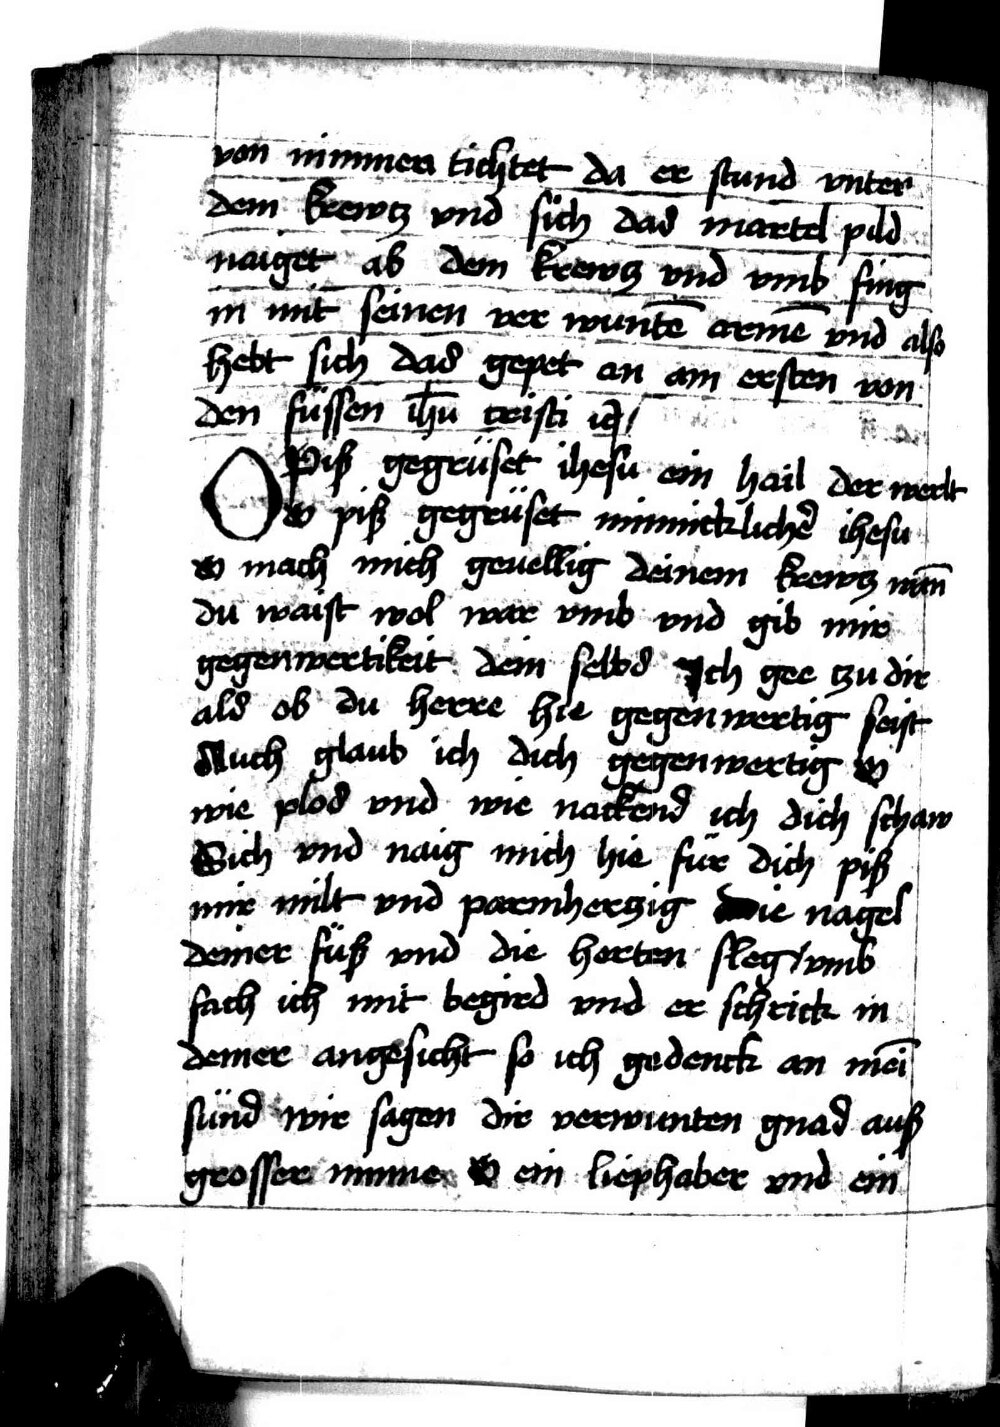 von nimmen tichtet da er stund vnter
dem krewtz vnd sich das martel pild
naiget ab dem krewtz vnd vmb fing
in mit seinen ver wuntē armē vnd also
hebt sich das gepet an am ersten von
den füssen ihū cristi
O Piß gegrüset ihesu ein hail der werlt
O piß gegrüset minnicklicher ihesu
O mach mich geuellig deinem krewtz
du waist wol war vmb vnd gib mir
gegenwertikeit dein selbs Ich gee tzu dir
als ob du herre hie gegenwertig seist
Auch glaub ich dich gegenwertig O
wie plos vnd wie nackend ich dich schaw
Sich vnd naig mich hie für dich piß
mir milt vnd parmhertzig Die nagel
deiner füß vnd die herten sleg / vmb
fach ich mit begird vnd er schrick in
deiner angesicht so ich gedenck an mei
sünd wir sagen dir verwunten gnad auß
grosser minne O ein liephaber vnd ein